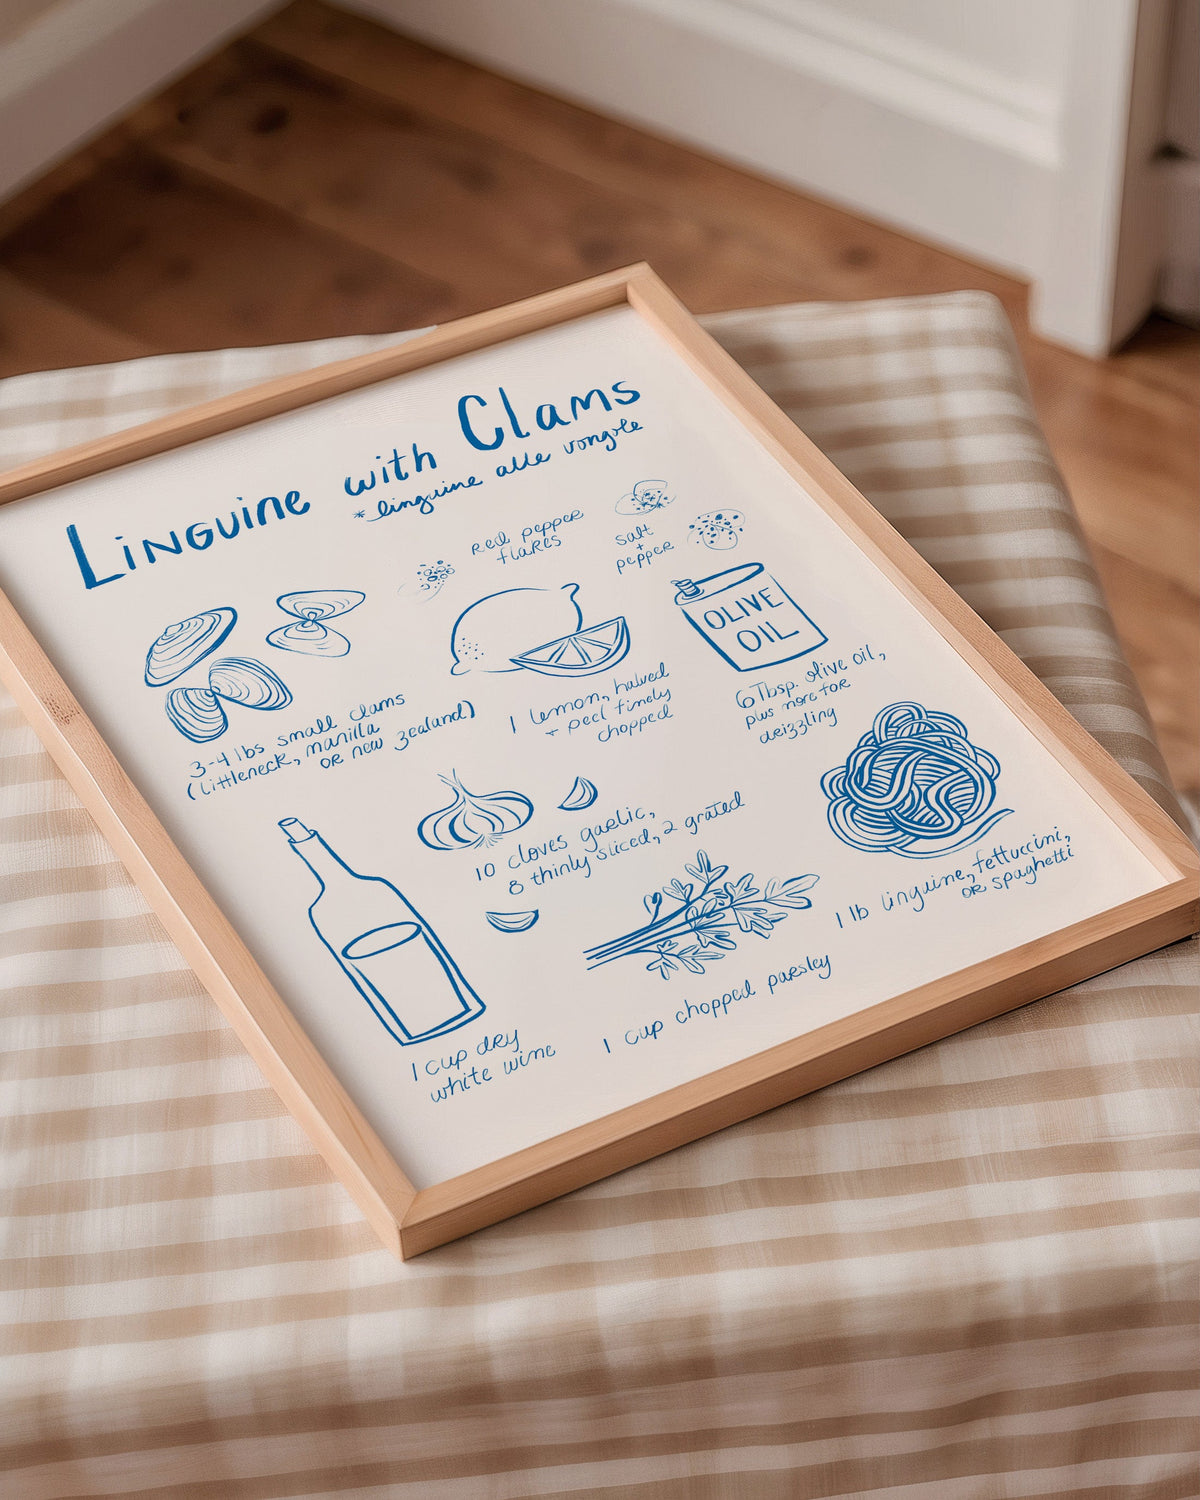 Linguine with Clams
*linguine alle vongole
red pepper
flakes
salt
+
pepper
OLIVE
OIL
3-4 lbs small clams
(littleneck, manilla
or new zealand)
1 lemon, halved
+ peel finely
chopped
6 Tbsp. olive oil,
plus more for
drizzling
10 cloves garlic,
8 thinly sliced, 2 grated
1 lb linguine, fettuccini,
or spaghetti
1 cup dry
white wine
1 cup chopped parsley